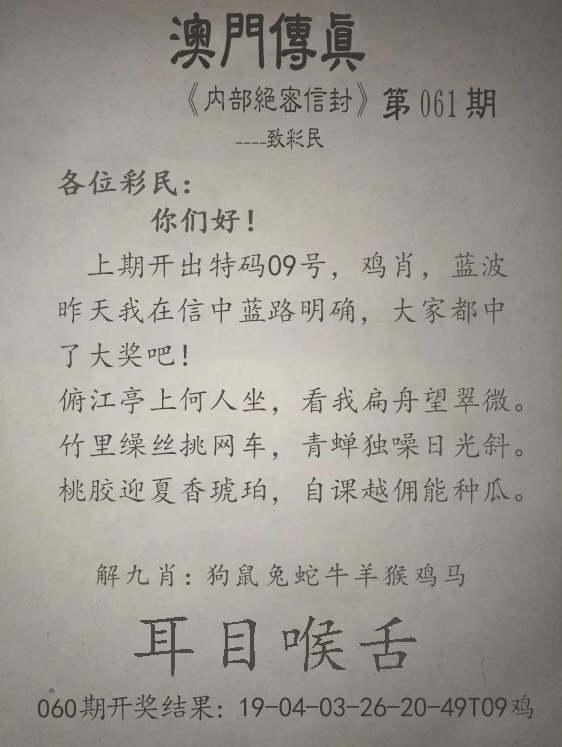 澳門傳真
《内部絕密信封》第061期
----致彩民
各位彩民：
你们好！
上期开出特码09号，鸡肖，蓝波
昨天我在信中蓝路明确，大家都中
了大奖吧！
俯江亭上何人坐，看我扁舟望翠微。
竹里缲丝挑网车，青蝉独噪日光斜。
桃胶迎夏香琥珀，自课越佣能种瓜。
解九肖：狗鼠兔蛇牛羊猴鸡马
耳目喉舌
060期开奖结果：19-04-03-26-20-49T09鸡